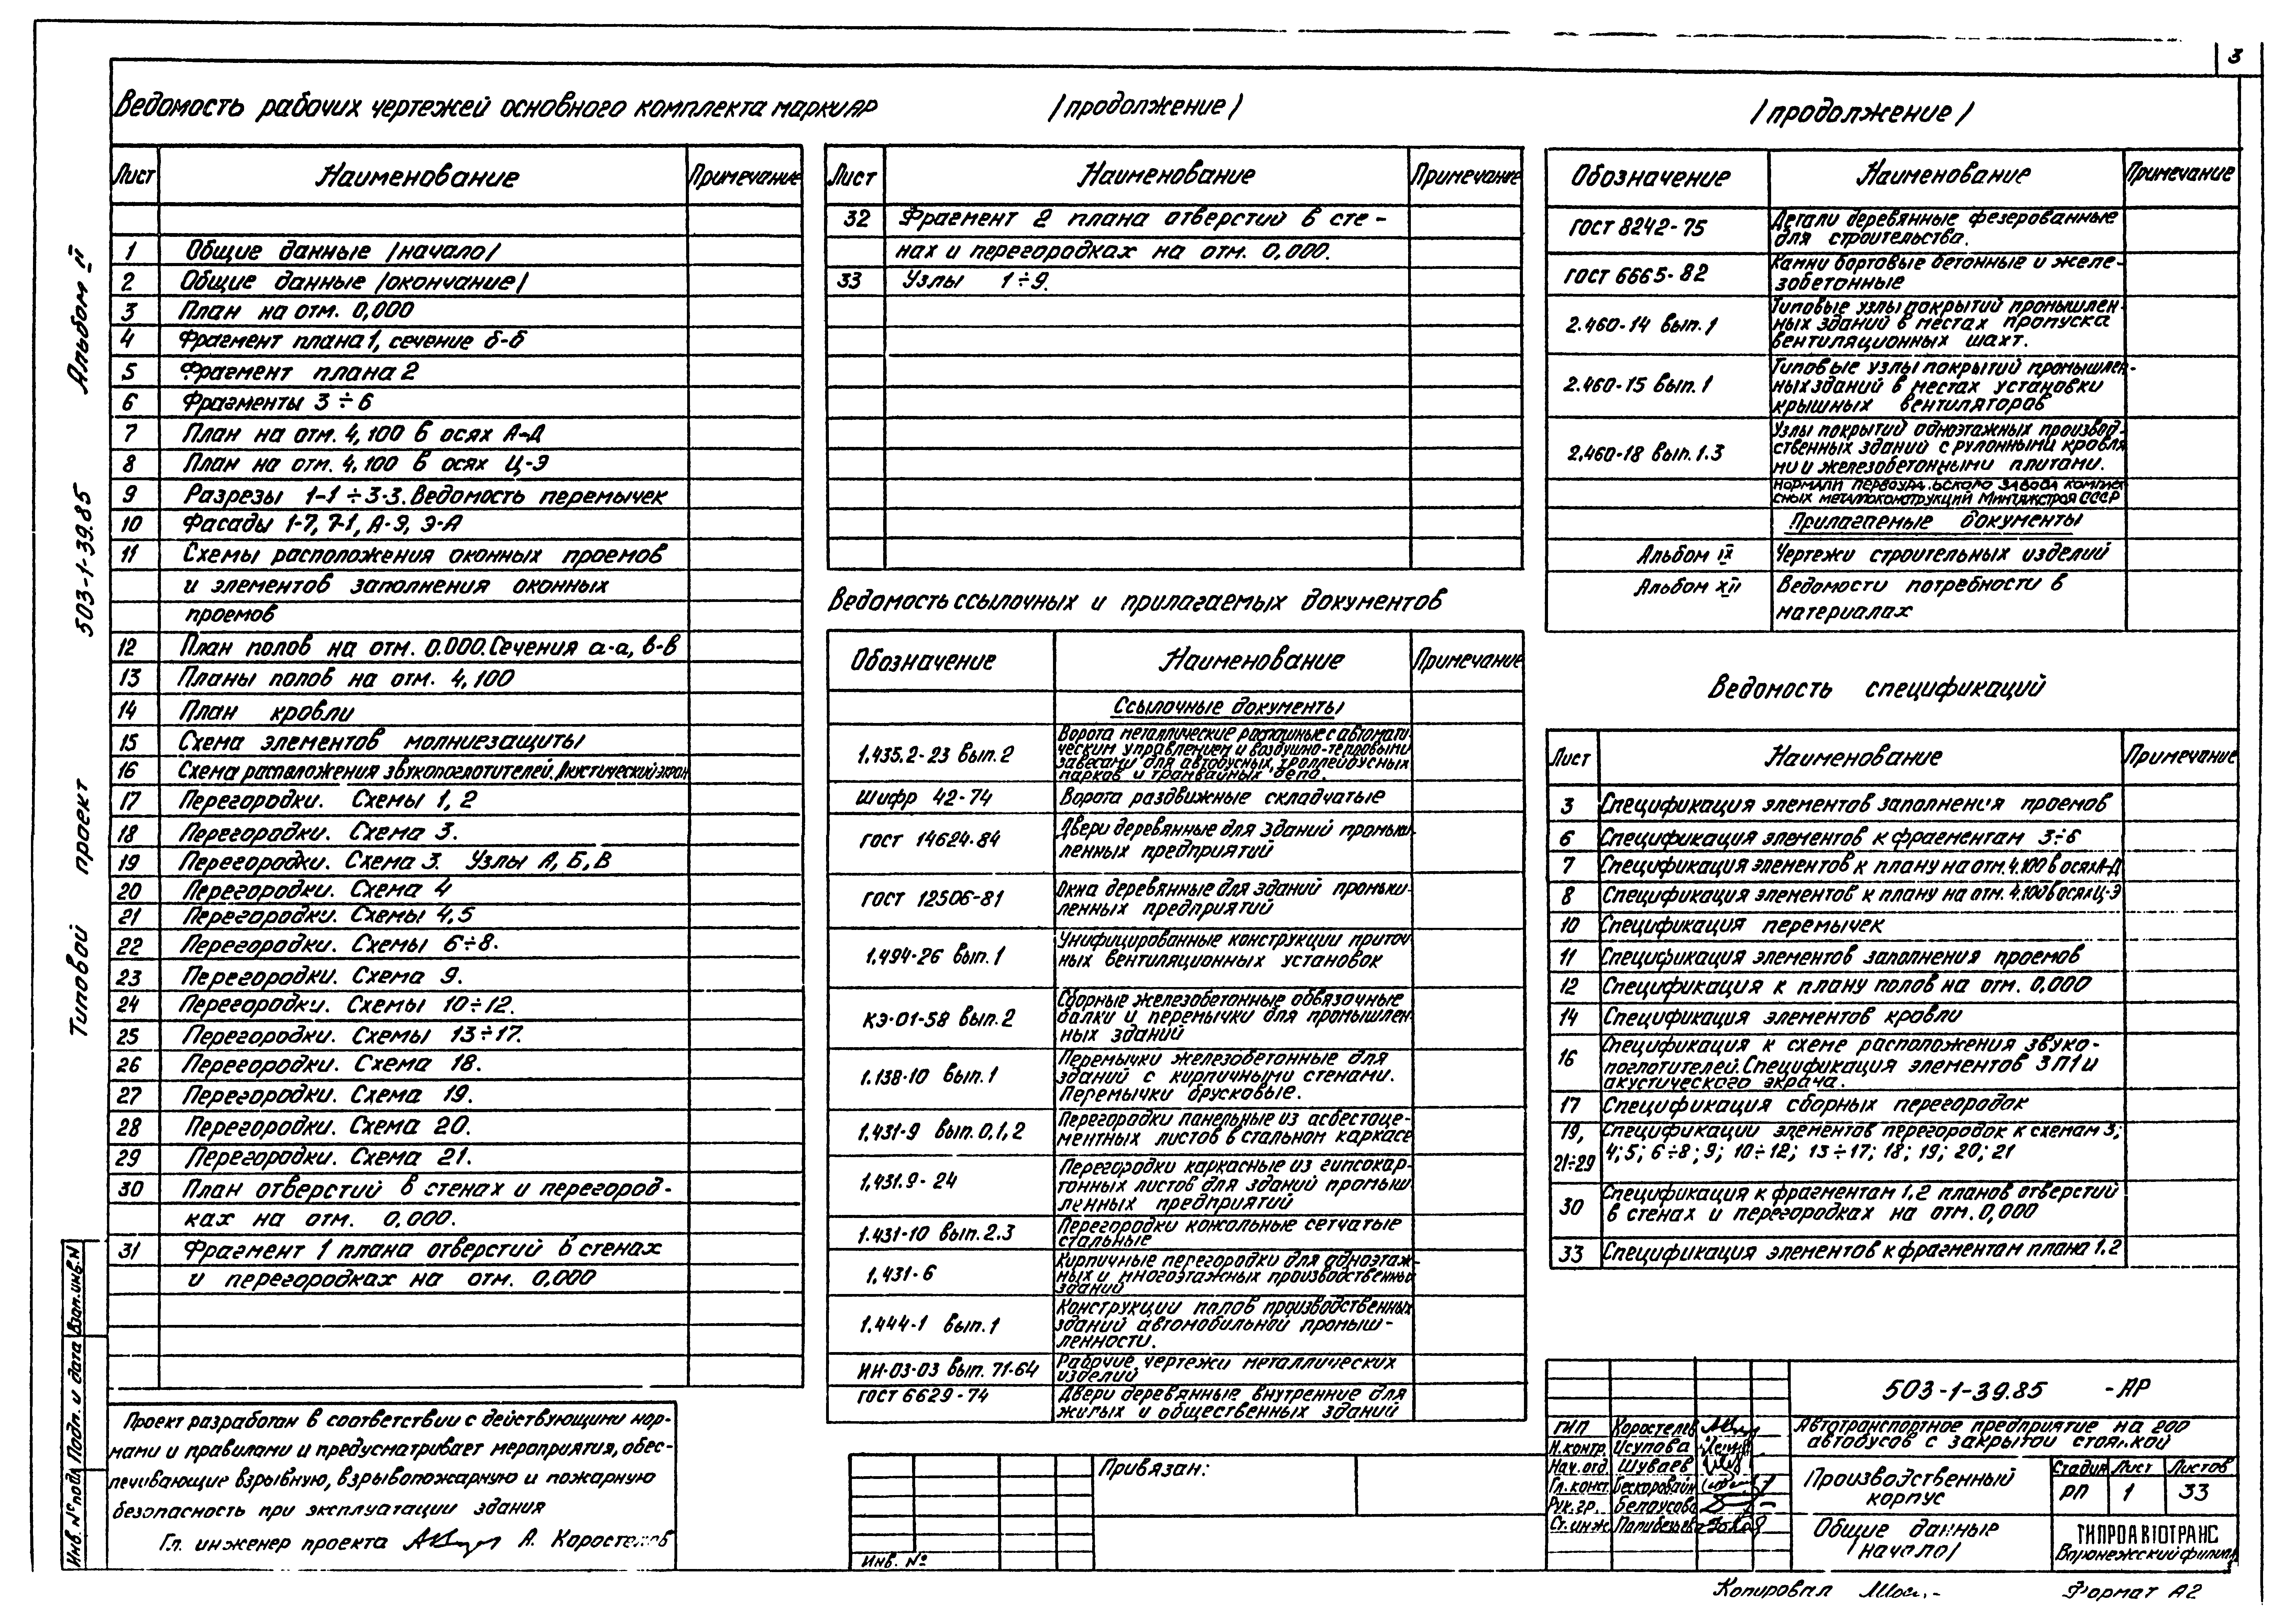 3
Ведомость рабочих чертежей основного комплекта марки АР
Лист Наименование Примечание
1 Общие данные /начало/
2 Общие данные /окончание/
3 План на отм. 0,000
4 Фрагмент плана 1, сечение б-б
5 Фрагмент плана 2
6 Фрагменты 3÷6
7 План на отм. 4,100 в осях А-Д
8 План на отм. 4,100 в осях Ц-Э
9 Разрезы 1-1÷3-3. Ведомость перемычек
10 Фасады 1-7, 7-1, А-Э, Э-А
11 Схемы расположения оконных проемов
и элементов заполнения оконных
проемов
12 План полов на отм. 0.000. Сечения а-а, в-в
13 Планы полов на отм. 4,100
14 План кровли
15 Схема элементов молниезащиты
16 Схема расположения звукопоглотителей. Акустический экран
17 Перегородки. Схемы 1, 2
18 Перегородки. Схема 3.
19 Перегородки. Схема 3. Узлы А, Б, В
20 Перегородки. Схема 4
21 Перегородки. Схемы 4,5
22 Перегородки. Схемы 6÷8.
23 Перегородки. Схема 9.
24 Перегородки. Схемы 10÷12.
25 Перегородки. Схемы 13÷17.
26 Перегородки. Схема 18.
27 Перегородки. Схема 19.
28 Перегородки. Схема 20.
29 Перегородки. Схема 21.
30 План отверстий в стенах и перегород-
ках на отм. 0,000.
31 Фрагмент 1 плана отверстий в стенах
и перегородках на отм. 0,000
Проект разработан в соответствии с действующими нор-
мами и правилами и предусматривает мероприятия, обес-
печивающие взрывную, взрывопожарную и пожарную
безопасность при эксплуатации здания
Гл. инженер проекта А. Коростелев
/продолжение/
Лист Наименование Примечание
32 Фрагмент 2 плана отверстий в сте-
нах и перегородках на отм. 0,000.
33 Узлы 1÷9.
Ведомость ссылочных и прилагаемых документов
Обозначение Наименование Примечание
Ссылочные документы
1.435.2-23 вып.2 Ворота металлические распашные с автомати-
ческим управлением и воздушно-тепловыми
завесами для автобусных, троллейбусных
парков и трамвайных депо.
Шифр 42-74 Ворота раздвижные складчатые
ГОСТ 14624-84 Двери деревянные для зданий промыш-
ленных предприятий
ГОСТ 12506-81 Окна деревянные для зданий промыш-
ленных предприятий
1.494-26 вып.1 Унифицированные конструкции приточ
ных вентиляционных установок
КЭ-01-58 вып.2 Сборные железобетонные обвязочные
балки и перемычки для промышлен
ных зданий
1.138-10 вып.1 Перемычки железобетонные для
зданий с кирпичными стенами.
Перемычки брусковые.
1.431-9 вып.0,1,2 Перегородки панельные из асбестоце-
ментных листов в стальном каркасе
1.431.9-24 Перегородки каркасные из гипсокар-
тонных листов для зданий промыш
ленных предприятий
1.431-10 вып.2.3 Перегородки консольные сетчатые
стальные
1.431-6 Кирпичные перегородки для одноэтаж-
ных и многоэтажных производственных
зданий
1.444-1 вып.1 Конструкции полов производственных
зданий автомобильной промыш-
ленности.
ИИ-03-03 вып. 71-64 Рабочие чертежи металлических
изделий
ГОСТ 6629-74 Двери деревянные внутренние для
жилых и общественных зданий
/продолжение/
Обозначение Наименование Примечание
ГОСТ 8242-75 Детали деревянные фезерованные
для строительства.
ГОСТ 6665-82 Камни бортовые бетонные и желе-
зобетонные
2.460-14 вып.1 Типовые узлы покрытий промышлен-
ных зданий в местах пропуска
вентиляционных шахт.
2.460-15 вып.1 Типовые узлы покрытий промышлен-
ных зданий в местах установки
крышных вентиляторов
2.460-18 вып.1.3 Узлы покрытий одноэтажных производ-
ственных зданий с рулонными кровля
ми и железобетонными плитами.
Нормали завода
металлоконструкций Минтяжстроя СССР
Прилагаемые документы
Альбом IX Чертежи строительных изделий
Альбом XII Ведомости потребности в
материалах
Ведомость спецификаций
Лист Наименование Примечание
3 Спецификация элементов заполнения проемов
6 Спецификация элементов к фрагментам 3÷6
7 Спецификация элементов к плану на отм. 4.100 в осях А-Д
8 Спецификация элементов к плану на отм. 4.100 в осях Ц-Э
10 Спецификация перемычек
11 Спецификация элементов заполнения проемов
12 Спецификация к плану полов на отм. 0,000
14 Спецификация элементов кровли
16 Спецификация к схеме расположения звуко-
поглотителей. Спецификация элементов ЗП1 и
акустического экрана.
17 Спецификация сборных перегородок
19, Спецификации элементов перегородок к схемам 3;
21÷29 4; 5; 6÷8; 9; 10÷12; 13÷17; 18; 19; 20; 21
30 Спецификация к фрагментам 1,2 планов отверстий
в стенах и перегородках на отм. 0,000
33 Спецификация элементов к фрагментам плана 1,2
Привязан:
Инв. №
503-1-39.85 -АР
ГИП Коростелев
Н.контр. Исупова
Нач.отд. Шуваев
Гл.конст. Бескоровайн
Рук.гр. Белаусова
Ст.инж.
Автотранспортное предприятие на 200
автобусов с закрытой стоянкой
Производственный
корпус
Стадия Лист Листов
РП 1 33
Общие данные
/начало/
ГИПРОАВТОТРАНС
Воронежский филиал
Копировал
Формат А2
Типовой проект 503-1-39.85 Альбом II
Инв. № подл. Подп. и дата Взам.инв.N